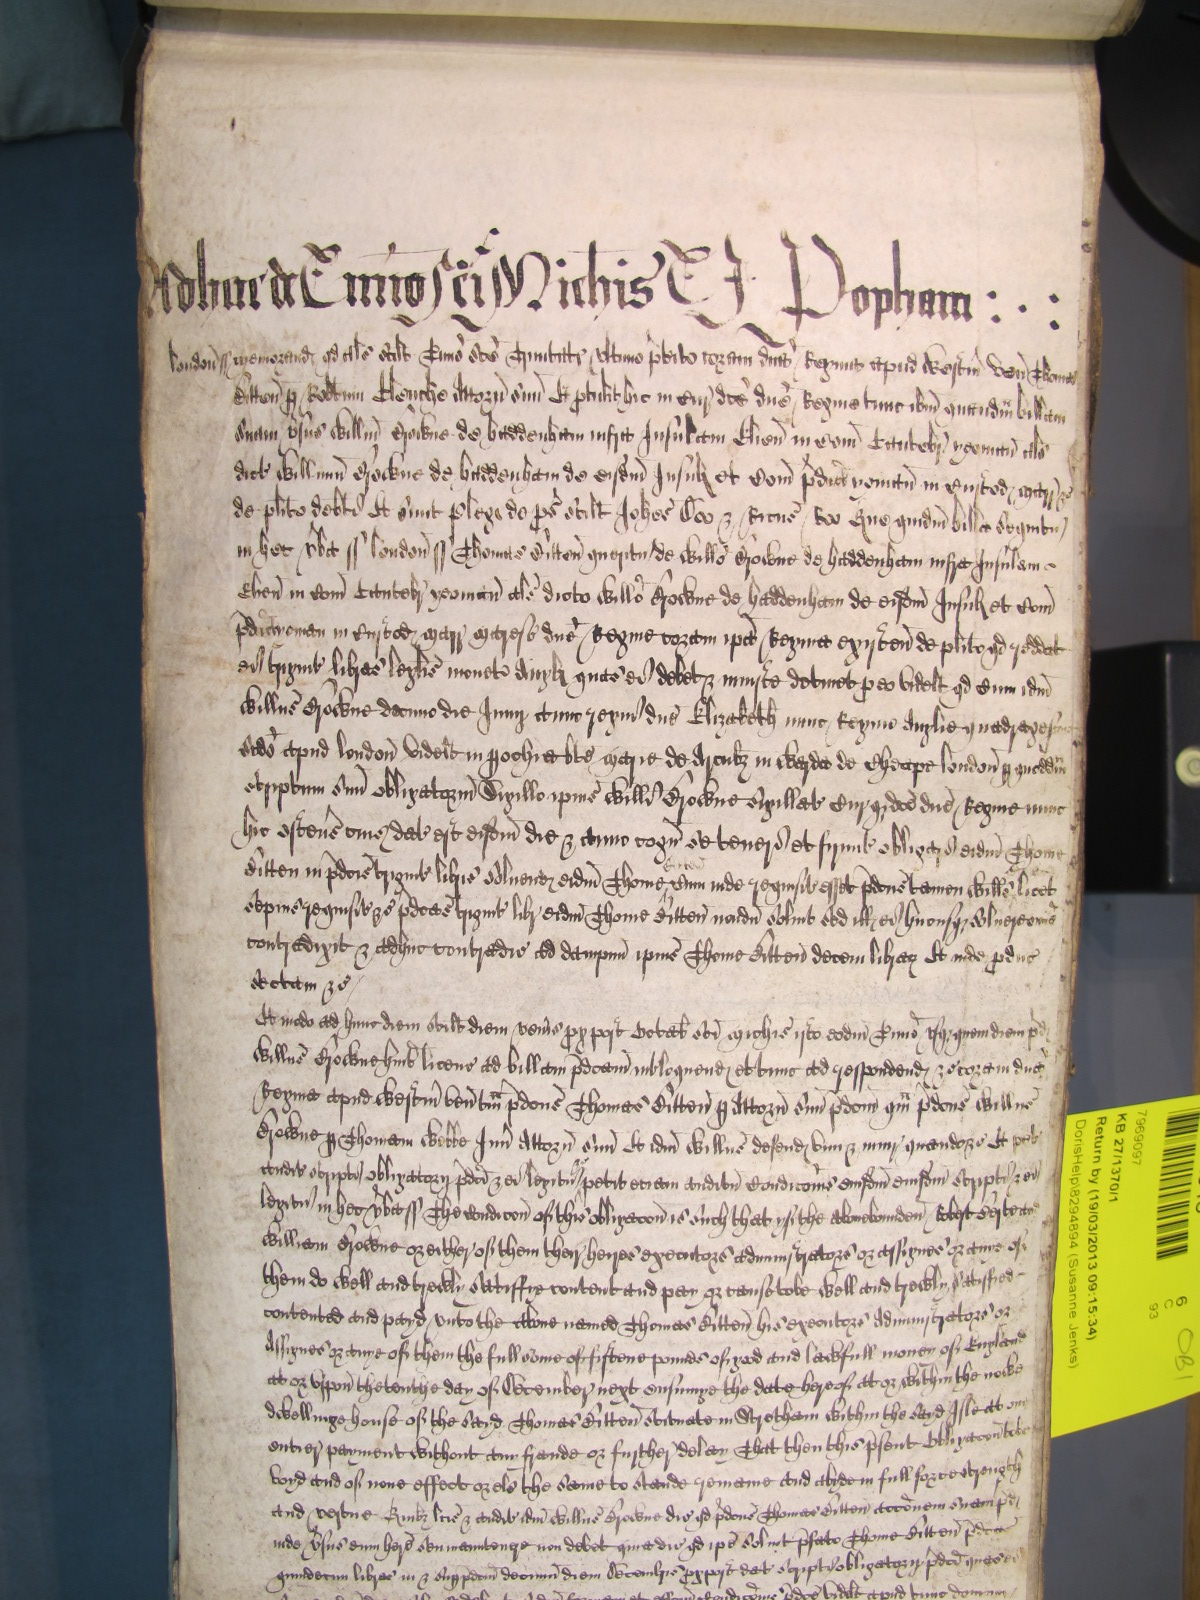 Adhuc de Tmino sci Michis E J Popham
London ss Memorand qd als scilt Tmino sce Trinitatis ultimo pterito coram dna Regina apud Westm ven Thomas
Sitten p Robtum Clenche Attorn suu Et ptulit hic in Cur dce dne Regine tunc ibm quandm billam
suam vsus Willm Browne de Haddenham infra Insulam Elien in Com Cantebr yeoman als
dict Willmum Browne de Haddenham de eisdm Insul et Com pdict yoman in Custod marr &c
de plito debti Et sunt pleg de ps scilt Johes Doo & Ricus Roo Que quidm billa sequitur
in hec vba ss London ss Thomas Sitten queritur de Willo Browne de Haddenham infra Insulam
Elien in Com Cantebr yeoman als dicto Willo Browne de Haddenham de eisdm Insul et Com
pdict yoman in Custod marr maresc dne Regine coram ipa Regina existen de plito qd reddat
ei triginta libras legalis monete Angl quas ei debet & iniuste detinet p eo videlt qd cum idm
Willus Browne decimo die Junij anno regni dne Elizabeth nunc Regine Anglie quadragesimo
scdo apud London videlt in pochia bte Marie de Arcubz in Warda de Cheape London p quoddm
scriptum suu obligatorium Sigillo ipius Willi Browne sigillat Curq dce dne Regine nunc
hic ostens cuius dat est eisdm die & anno cogn se teneri et firmit obligari eidm Thome
Sitten in pdcis triginta libris solvend eidm Thome Sitten Cum inde requisit esset pdcus tamen Willus licet
sepius requisit &c pdcas triginta libr eidm Thome Sitten nondu solvit sed ill ei hucusq solvere omio
contradixit & adhuc contradic ad dampnu ipius Thome Sitten decem librar Et inde pduc
sectam &c
Et modo ad hunc diem scilt diem vens px post Octab sci Michis isto eodm Tmino vsq quem diem pd
Willus Browne huit licenc ad billam pdcam intloquend et tunc ad respondend &c coram dna
Regina apud Westm ven tam pdcus Thomas Sitten p Attorn suu pdcm qm pdcus Willus
Browne p Thomam Webbe Jun Attorn suu Et idm Willus defend vim & iniur quando &c Et petit
auditu scripti obligatorij pdci & ei legitur &c petit eciam auditu Condicois eiusdm scripti & ei
legitur in hec vba ss The condicon of this obligacon is such that yf the above bounden
William Browne or either of them their heyres executors administrators or assignes or anie of
them do well and trewly Satisffie content and pay or cause to be well and trewly satisfied
contented and payd unto the above named Thomas Sitten his executors Administrators or
Assignes or anye of them the full some of fiftene poundes of good and lawfull money of England
at or vppon the tenthe day of December next ensuinge the date hereof at or within the nowe
dwellinge house of the sayd Thomas Sitten scituate in Stretham within the sayd Isle at one
entier payment without any fraude or further delay That then this psent Obligacon to be
voyd and of none effect or els the same to stande remaine and abyde in full force strength
and vertue Quibz lcis & auditis idm Willus Browne dic qd pdcus Thomas Sitten accionem suam pd
inde vsus eum here seu manutenere non debet quia dic qd ipe solvit pfato Thome Sitten pdcas
quindecim libras in & sup pdcm decimu diem Decembris px post dat scripti obligatorij pdci

7969097
KB 27/1370/1
Return by (19/03/2013 09:15:34)
DorisHelp\8294894 (Susanne Jenks)
6
C
93
OB1